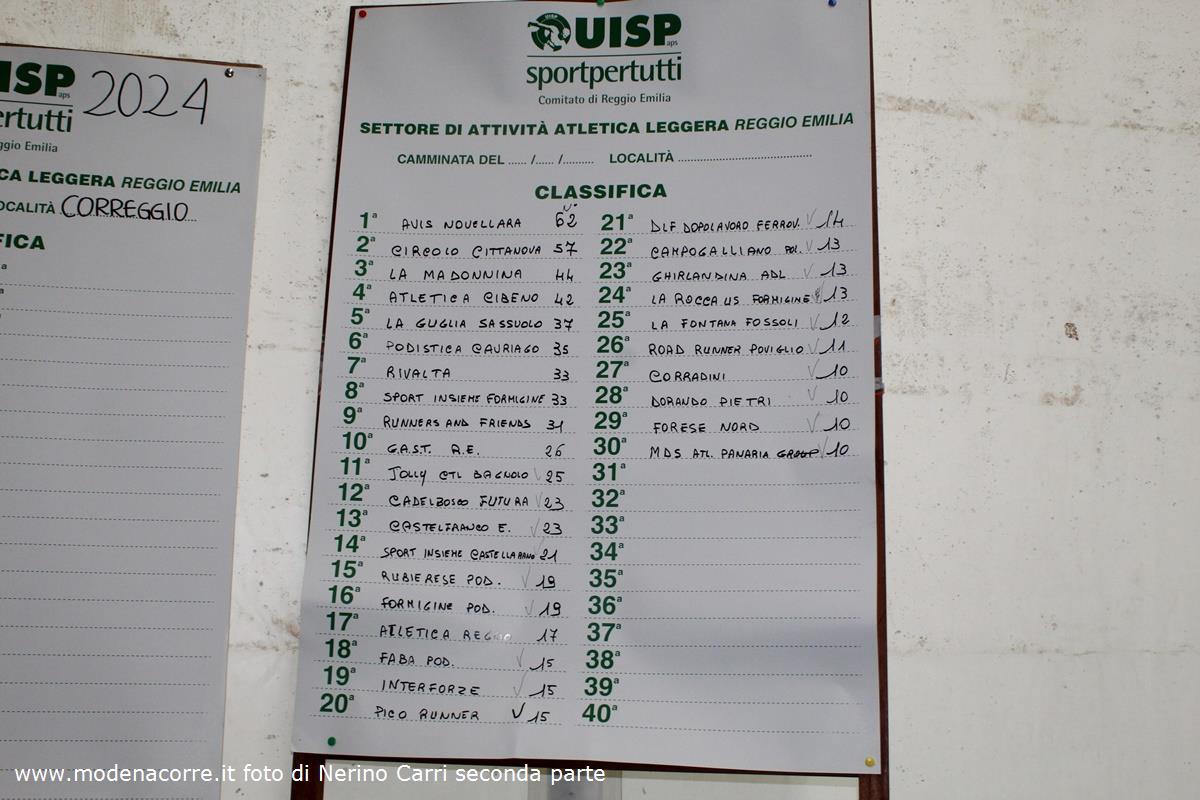 UISP aps 2024
ertutti
ggio Emilia
CA LEGGERA REGGIO EMILIA
OCALITÀ CORREGGIO
FICA
UISP aps
sportpertutti
Comitato di Reggio Emilia
SETTORE DI ATTIVITÀ ATLETICA LEGGERA REGGIO EMILIA
CAMMINATA DEL ...... /..... /......... LOCALITÀ ........................................
CLASSIFICA
N°
1ª AVIS NOVELLARA 62
2ª CIRCOLO CITTANOVA 57
3ª LA MADONNINA 44
4ª ATLETICA CIBENO 42
5ª LA GUGLIA SASSUOLO 37
6ª PODISTICA CAVRIAGO 35
7ª RIVALTA 33
8ª SPORT INSIEME FORMIGINE 33
9ª RUNNERS AND FRIENDS 31
10ª G.A.S.T. R.E. 26
11ª JOLLY CTL BAGNOLO √ 25
12ª CADELBOSCO FUTURA √ 23
13ª CASTELFRANCO E. √ 23
14ª SPORT INSIEME CASTELLARANO 21
15ª RUBIERESE POD. √ 19
16ª FORMIGINE POD. √ 19
17ª ATLETICA REGGIO 17
18ª FABA POD. √ 15
19ª INTERFORZE √ 15
20ª PICO RUNNER √ 15
21ª DLF DOPOLAVORO FERROV. √ 14
22ª CAMPOGALLIANO POL. √ 13
23ª GHIRLANDINA ADL √ 13
24ª LA ROCCA US FORMIGINE √ 13
25ª LA FONTANA FOSSOLI √ 12
26ª ROAD RUNNER POVIGLIO √ 11
27ª CORRADINI √ 10
28ª DORANDO PIETRI √ 10
29ª FORESE NORD √ 10
30ª MDS ATL. PANARIA GROUP √ 10
31ª
32ª
33ª
34ª
35ª
36ª
37ª
38ª
39ª
40ª
www.modenacorre.it foto di Nerino Carri seconda parte